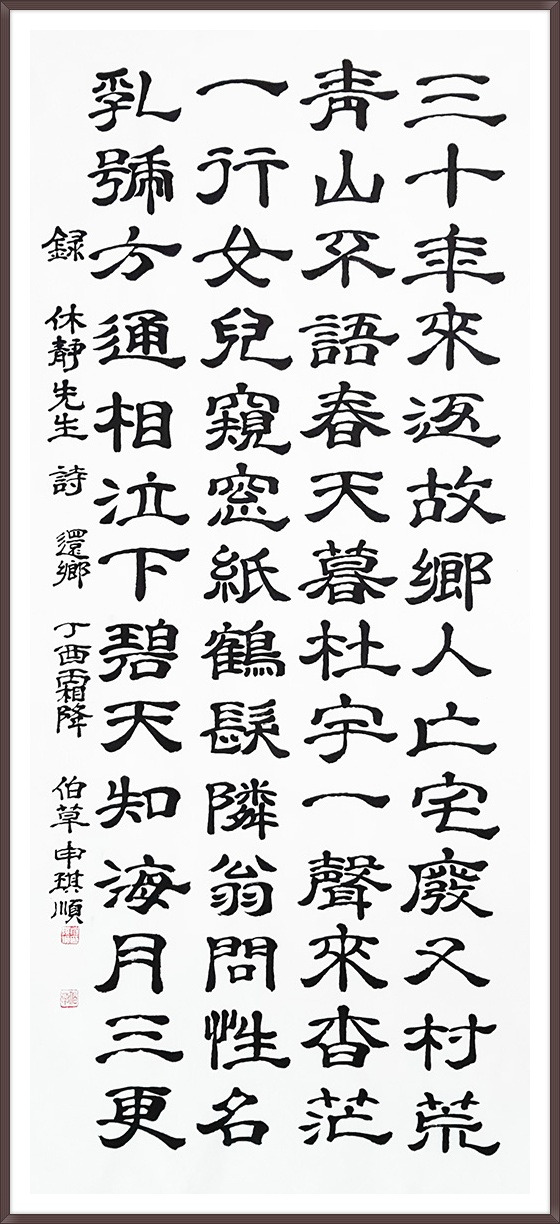 三十年來返故鄉人亡宅廢又村荒
青山不語春天暮杜宇一聲來杳茫
一行女兒窺窓紙鶴髮隣翁問性名
乳號方通相泣下碧天知海月三更
録 休靜先生 詩 還鄉 丁酉霜降 伯草申琪順